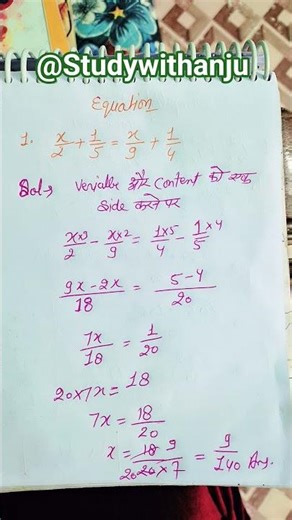 @Studywithanju
Equation
1. x/2 + 1/5 = x/9 + 1/4
Sol→ Verialbe और Content को एक
side करने पर
x×9/2 - x×2/9 = 1×5/4 - 1×4/5
9x-2x/18 = 5-4/20
7x/18 = 1/20
20×7x = 18
7x = 18/20
x = 18 9/20 20×7 = 9/140 Ans.